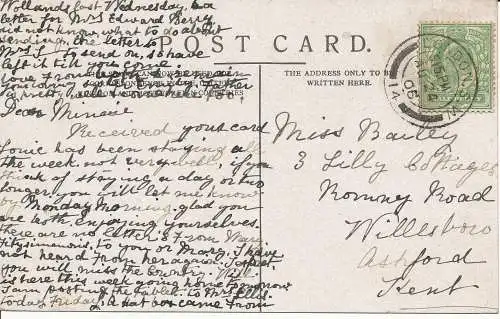 Wollands last Wednesday, & a
letter for Mrs Edward Berry,
did not know what to do about
sending on the letter to
Mrs S to send on, so have
left it till you come
love from
POST CARD.
THE ADDRESS ONLY TO BE
WRITTEN HERE.
Dear Minnie
Received your card
Louie has been staying all
the week not very well, if you
think of staying a day or two
longer you will let me know
by Monday Morning glad you
are both enjoying yourselves.
There are no letters from Mary
Fitzsimmons to you or Mary, I have
not heard from her again.
you will miss the Country. Will
is here this week going home tomorrow
I am posting the tablet to Mrs Ells.
today Friday, A hat box came from
Miss Bailey
3 Lilly Cottages
Romney Road
Willesboro
Ashford
Kent